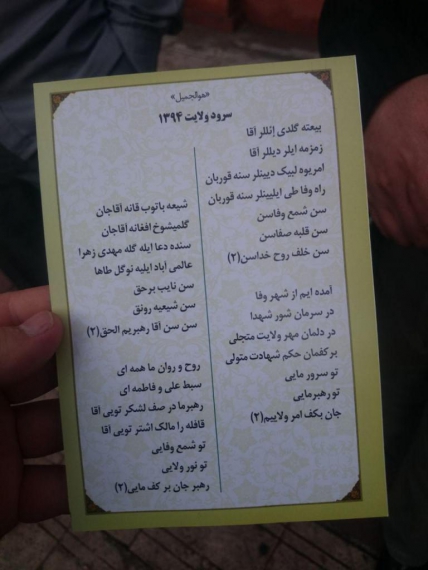 «هوالجمیل»
سرود ولایت ۱۳۹۴
بیعته گلدی إللر آقا
زمزمه ایلر دیللر آقا
امریوه لبیک دیینلر سنه قوربان
راه وفا طی ایلیینلر سنه قوربان
سن شمع وفاسن
سن قلبه صفاسن
سن خلف روح خداسن(۲)
آمده ایم از شهر وفا
در سرمان شور شهدا
در دلمان مهر ولایت متجلی
بر کفمان حکم شهادت متولی
تو سرور مایی
تو رهبرمایی
جان بکف امر ولاییم(۲)
شیعه باتوب قانه آقاجان
گلمیشوخ افغانه آقاجان
سنده دعا ایله گله مهدی زهرا
عالمی آباد ایلیه نوگل طاها
سن نایب برحق
سن شیعیه رونق
سن سن آقا رهبریم الحق(۲)
روح و روان ما همه ای
سبط علی و فاطمه ای
رهبرما در صف لشکر تویی آقا
قافله را مالک اشتر تویی آقا
تو شمع وفایی
تو نور ولایی
رهبر جان بر کف مایی(۲)